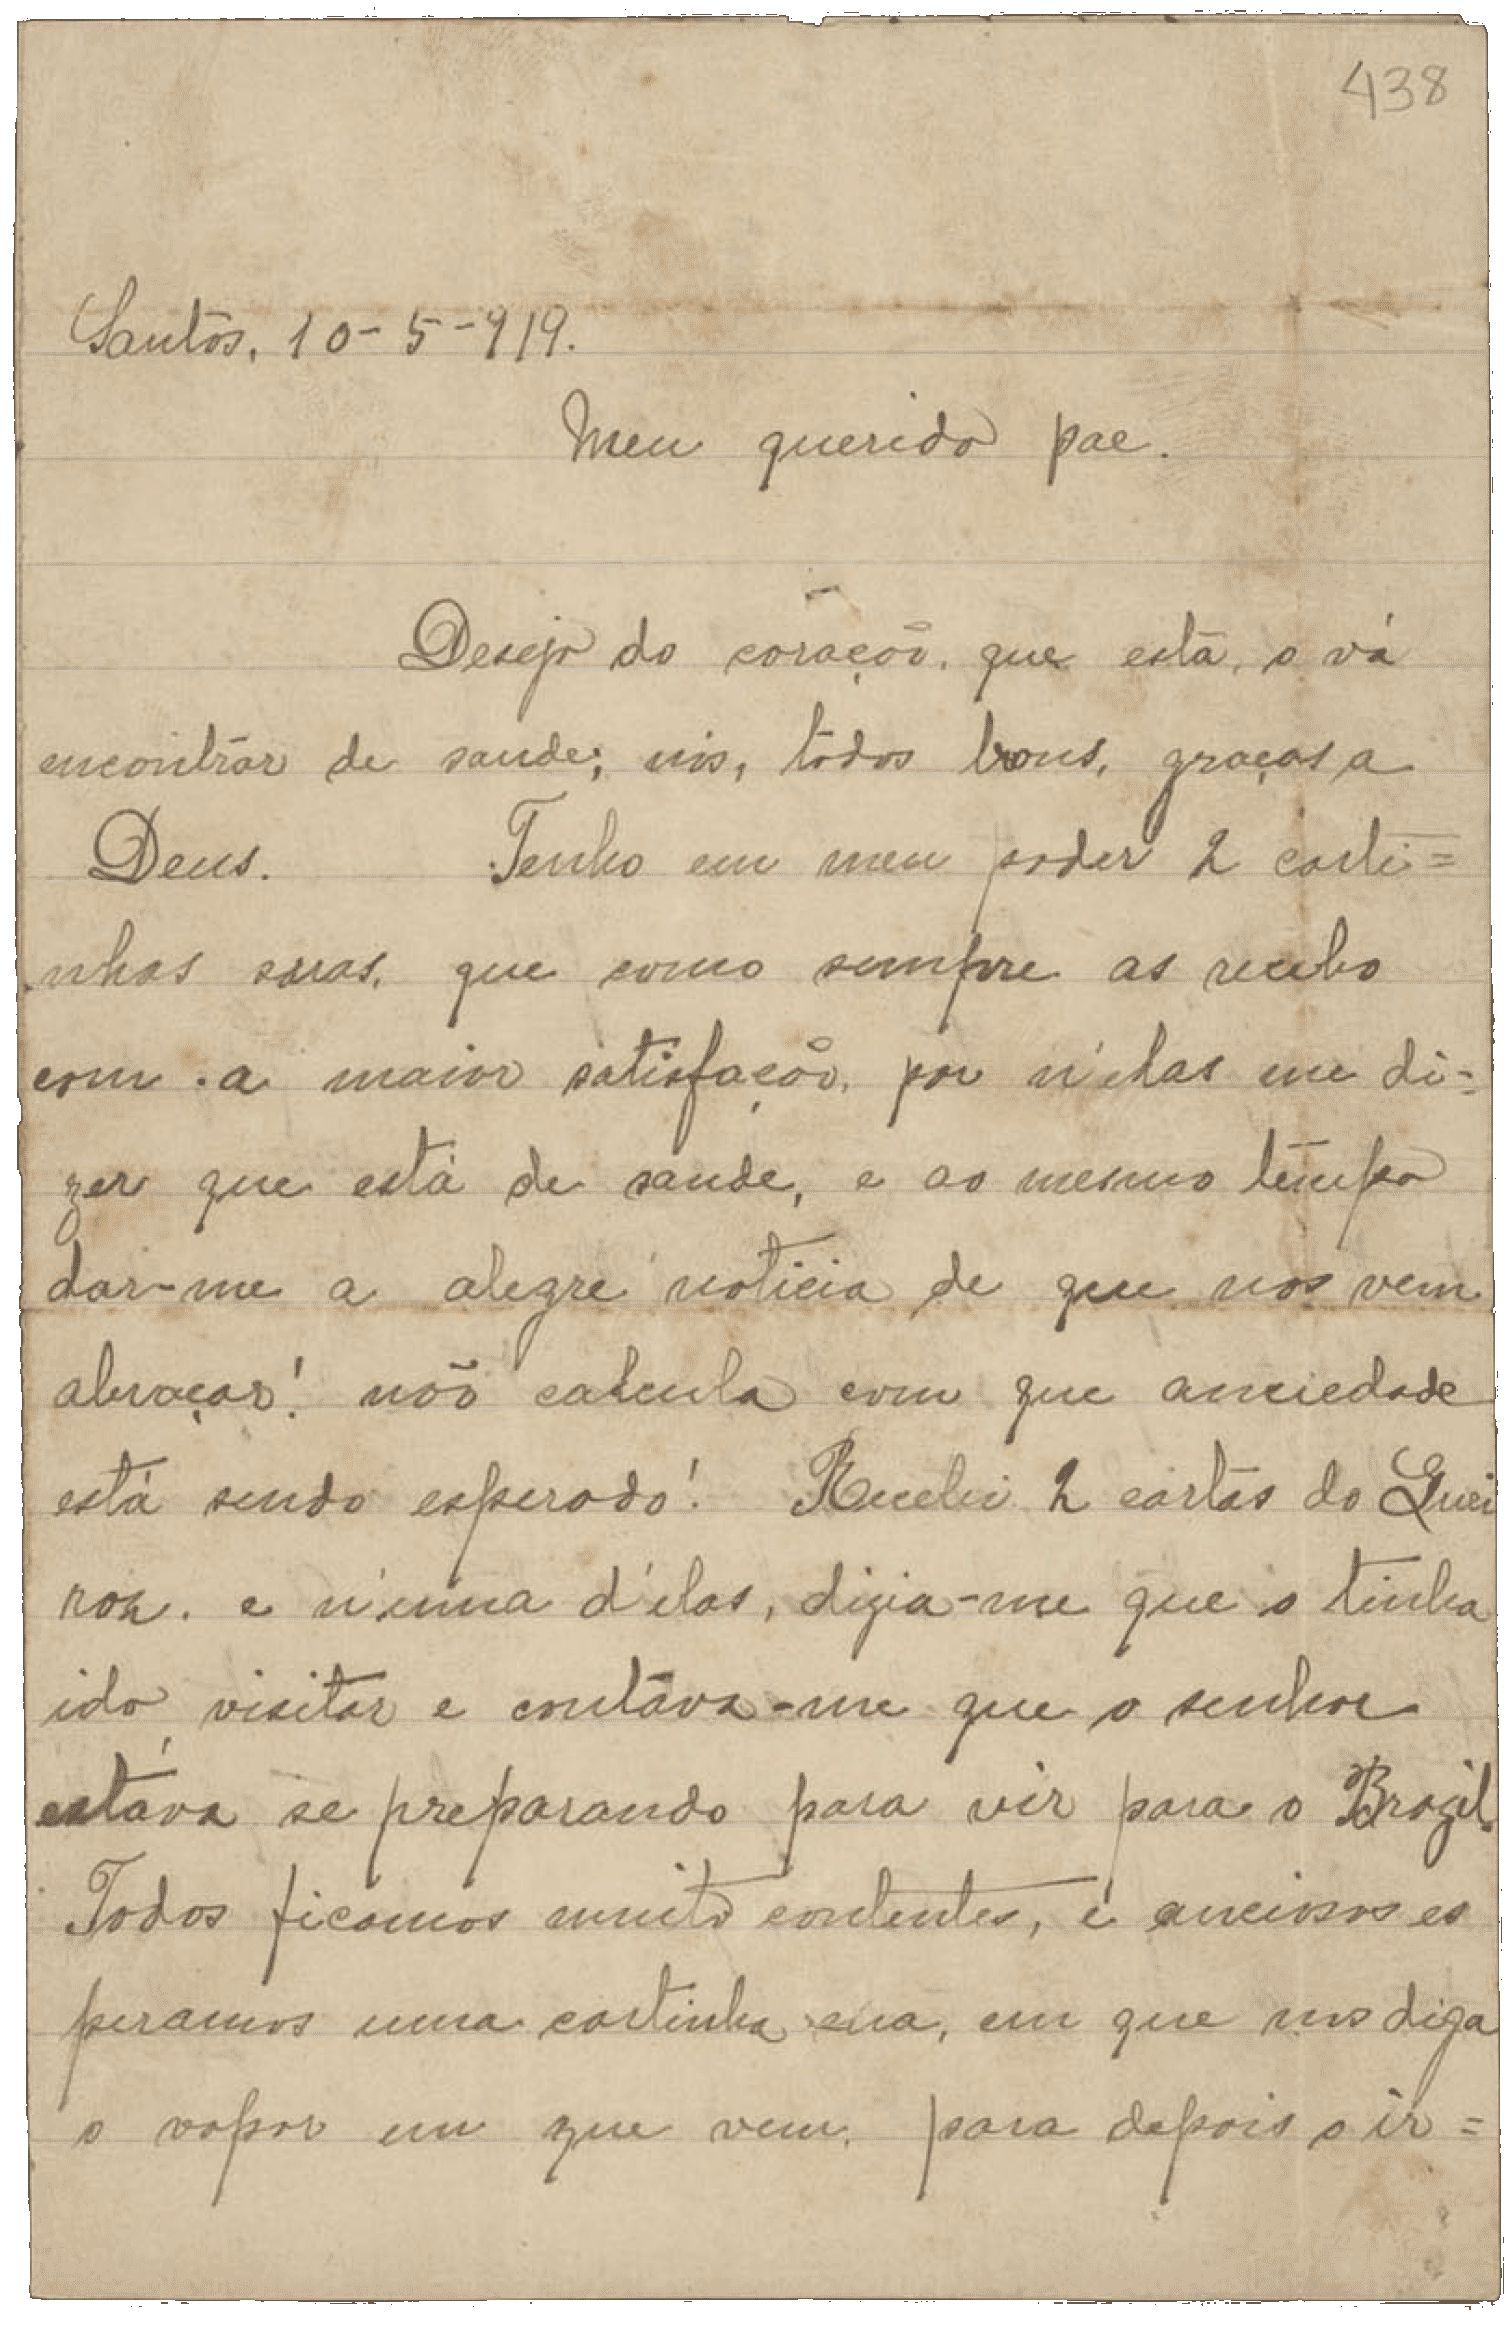 438
Santos, 10-5-919.
Meu querido pae.
Desejo do coração, que esta, o vá
encontrar de saude; nós, todos bons, graças a
Deus. Tenho em meu poder 2 carti=
nhas suas, que como sempre as recebo
com a maior satisfação, por n'elas me di=
zer que está de saude, e ao mesmo tempo
dar-me a alegre noticia de que nos vem
abraçar! não calcula com que anciedade
está sendo esperado! Recebi 2 cartas do Quei
roz. e n'uma d'elas, dizia-me que o tinha
ido visitar e contáva-me que o senhor
estáva se preparando para vir para o Brazil.
Todos ficamos muito contentes, e anciosos es
peramos uma cartinha sua, em que nos diga
o vapor em que vem, para depois o ir=